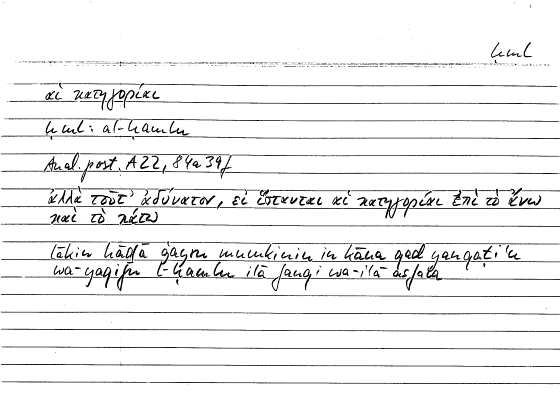 ḥml
αἱ κατηγορίαι
ḥml: al-ḥamlu
Anal. post. A22, 84a39f
ἀλλὰ τοῦτ᾽ ἀδύνατον, εἰ ἵστανται αἱ κατηγορίαι ἐπὶ τὸ ἄνω
καὶ τὸ κάτω
lākin hāḏā ġayru mumkinin in kāna qad yanqaṭiʿu
wa-yaqifu l-ḥamlu ilā fauqi wa-ilā asfala